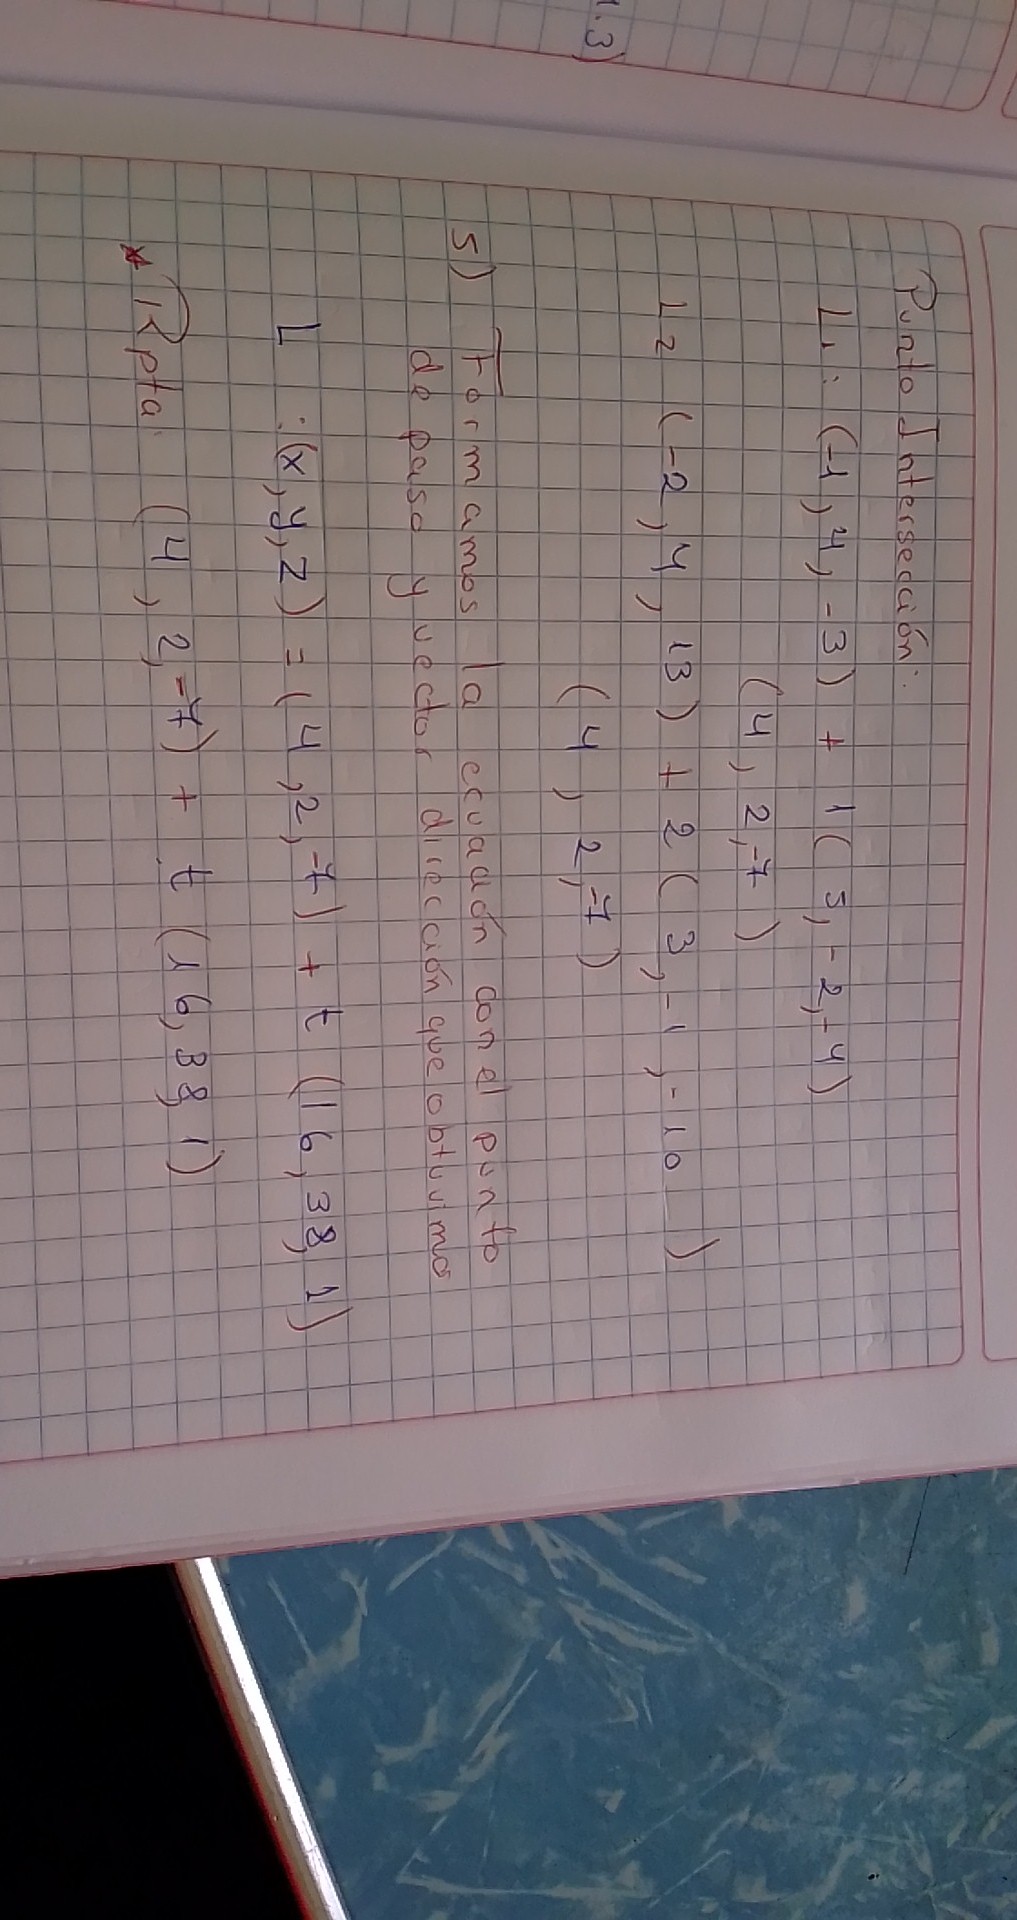 1.3)
Punto Intersección:
L1: (-1, 4, -3) + 1 ( 5, -2, -4)
(4, 2, -7)
L2 (-2, 4, 13) + 2 ( 3, -1, -10 )
(4, 2, -7)
5) Formamos la ecuación con el punto
de paso y vector dirección que obtuvimos
L : (x, y, z) = (4, 2, -7) + t (16, 38, 1)
* Rpta: (4, 2, -7) + t (16, 38, 1)